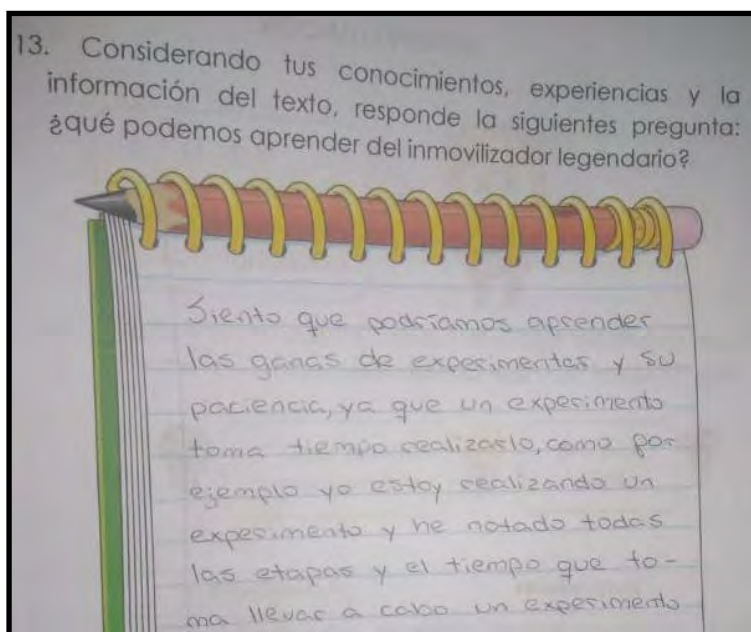 13. Considerando tus conocimientos, experiencias y la
información del texto, responde la siguientes pregunta:
¿qué podemos aprender del inmovilizador legendario?
Siento que podríamos aprender
las ganas de experimentar y su
paciencia, ya que un experimento
toma tiempo realizarlo, como por
ejemplo yo estoy realizando un
experimento y he notado todas
las etapas y el tiempo que to-
ma llevar a cabo un experimento